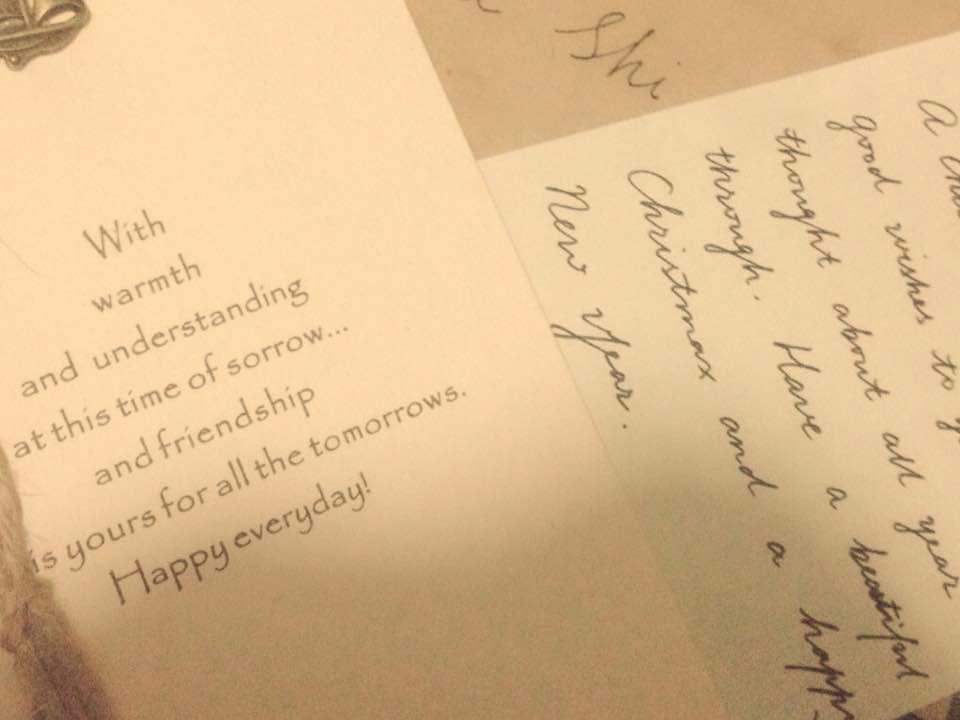 With
warmth
and understanding
at this time of sorrow...
and friendship
is yours for all the tomorrows.
Happy everyday!
Shi
A
good wishes to
thought about all year
through. Have a beautiful
Christmas and a
New Year.